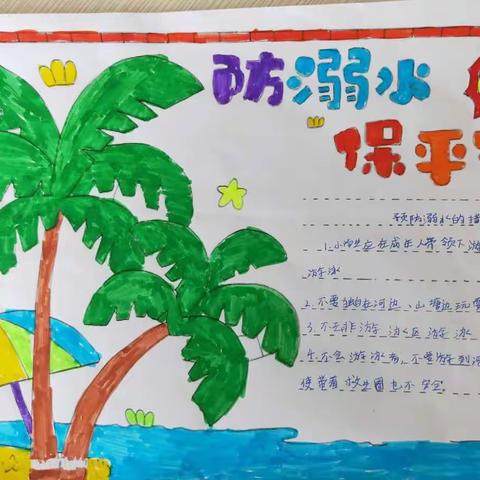 防溺水
保平
预防溺水的措
1.小学生应在成年人带领下游
游泳
2.不要独自在河边、山塘边玩耍
3.不去非游泳区游泳
4.不会游泳者,不要游到深
使带着救生圈也不安全